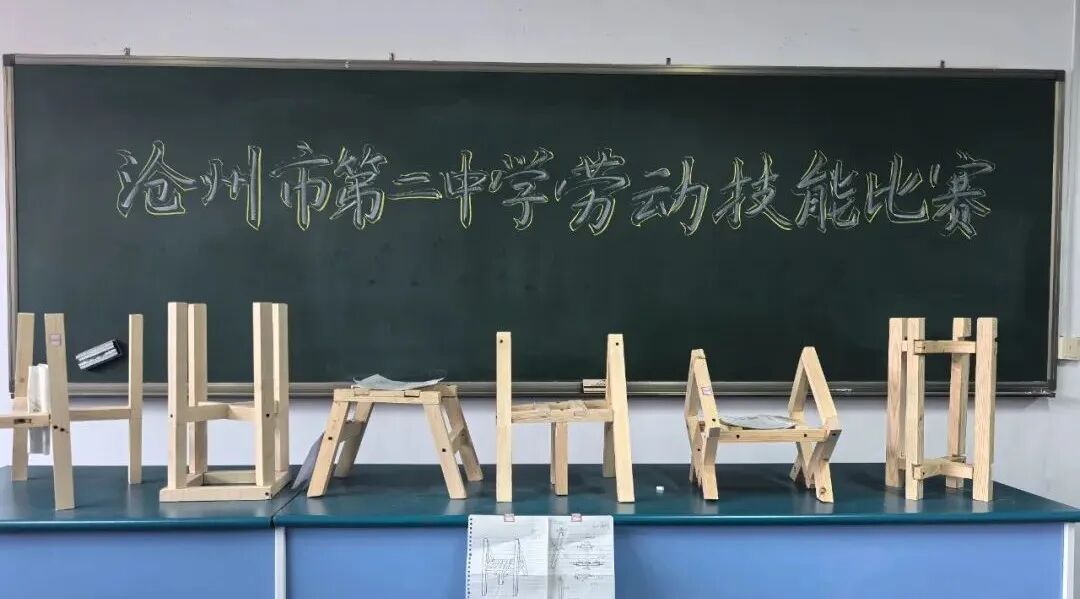 沧州市第二中学劳动技能比赛